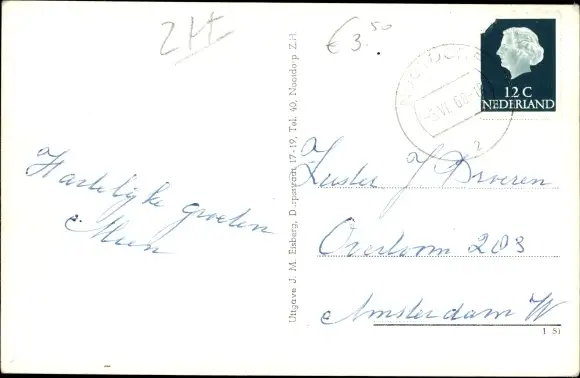 ZH
€ 3.50
12 C
NEDERLAND
5 VI. 60
2
Hartelijke groeten
Uitgave J. M. Elsberg, Dorpsstraat 17-19, Tel. 40, Nootdorp Z.H.
Zuster J Droeren
Overtoom 203
Amsterdam W
1 51